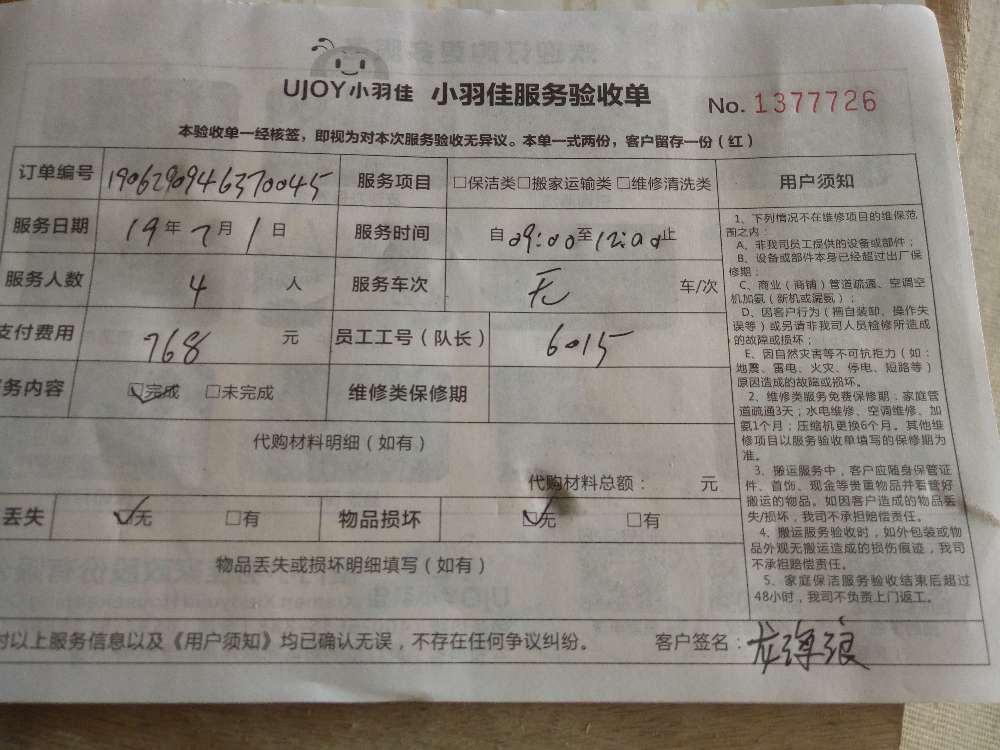 UJOY小羽佳 小羽佳服务验收单 No. 1377726
本验收单一经核签，即视为对本次服务验收无异议。本单一式两份，客户留存一份（红）
订单编号 1906290946370045 服务项目 □保洁类□搬家运输类□维修清洗类
服务日期 19年7月1日 服务时间 自09:00至12:00止
服务人数 4 人 服务车次 无 车/次
支付费用 768 元 员工工号（队长） 6015
务内容 ☑完成 □未完成 维修类保修期
代购材料明细（如有）
代购材料总额： 元
丢失 ☑无 □有 物品损坏 ☑无 □有
物品丢失或损坏明细填写（如有）
对以上服务信息以及《用户须知》均已确认无误，不存在任何争议纠纷。 客户签名：龙海浪
用户须知
1、下列情况不在维修项目的维保范
围之内：
A、非我司员工提供的设备或部件；
B、设备或部件本身已经超过出厂保
修期；
C、商业（商铺）管道疏通、空调空
机加氨（新机或漏氨）；
D、因客户行为（擅自装卸、操作失
误等）或另请非我司人员检修所造成
的故障或损坏；
E、因自然灾害等不可抗拒力（如：
地震、雷电、火灾、停电、短路等）
原因造成的故障或损坏。
2、维修类服务免费保修期：家庭管
道疏通3天；水电维修、空调维修、加
氨1个月；压缩机更换6个月。其他维
修项目以服务验收单填写的保修期为
准。
3、搬运服务中，客户应随身保管证
件、首饰、现金等贵重物品并看管好
搬运的物品。如因客户造成的物品丢
失/损坏，我司不承担赔偿责任。
4、搬运服务验收时，如外包装或物
品外观无搬运造成的损伤痕迹，我司
不承担赔偿责任。
5、家庭保洁服务验收结束后超过
48小时，我司不负责上门返工。